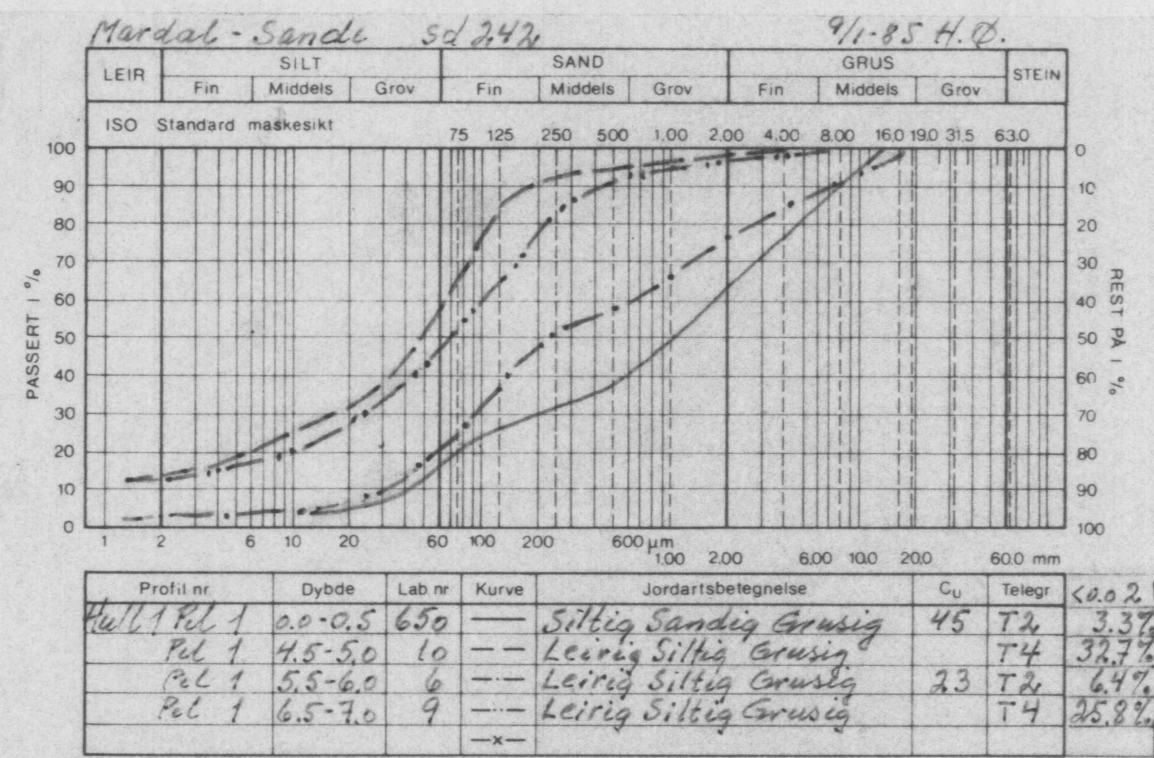 Mardal - Sande sd 242 9/1-85 H.Ø.
LEIR SILT SAND GRUS STEIN
Fin Middels Grov Fin Middels Grov Fin Middels Grov
ISO Standard maskesikt 75 125 250 500 1.00 2.00 4.00 8.00 16.0 19.0 31.5 63.0
100 0
90 10
80 20
70 30
60 40
50 50
40 60
30 70
20 80
10 90
0 100
PASSERT I %
REST PÅ I %
1 2 6 10 20 60 100 200 600 µm
1.00 2.00 6.00 10.0 20.0 60.0 mm
Profil nr. Dybde Lab nr Kurve Jordartsbetegnelse Cu Telegr <0.02
Hull 1 Pel 1 0.0-0.5 650 Siltig Sandig Grusig 45 T2 3.3%
Pel 1 4.5-5.0 10 Leirig Siltig Grusig T4 32.7%
Pel 1 5.5-6.0 6 Leirig Siltig Grusig 23 T2 6.4%
Pel 1 6.5-7.0 9 Leirig Siltig Grusig T4 25.8%
—x—